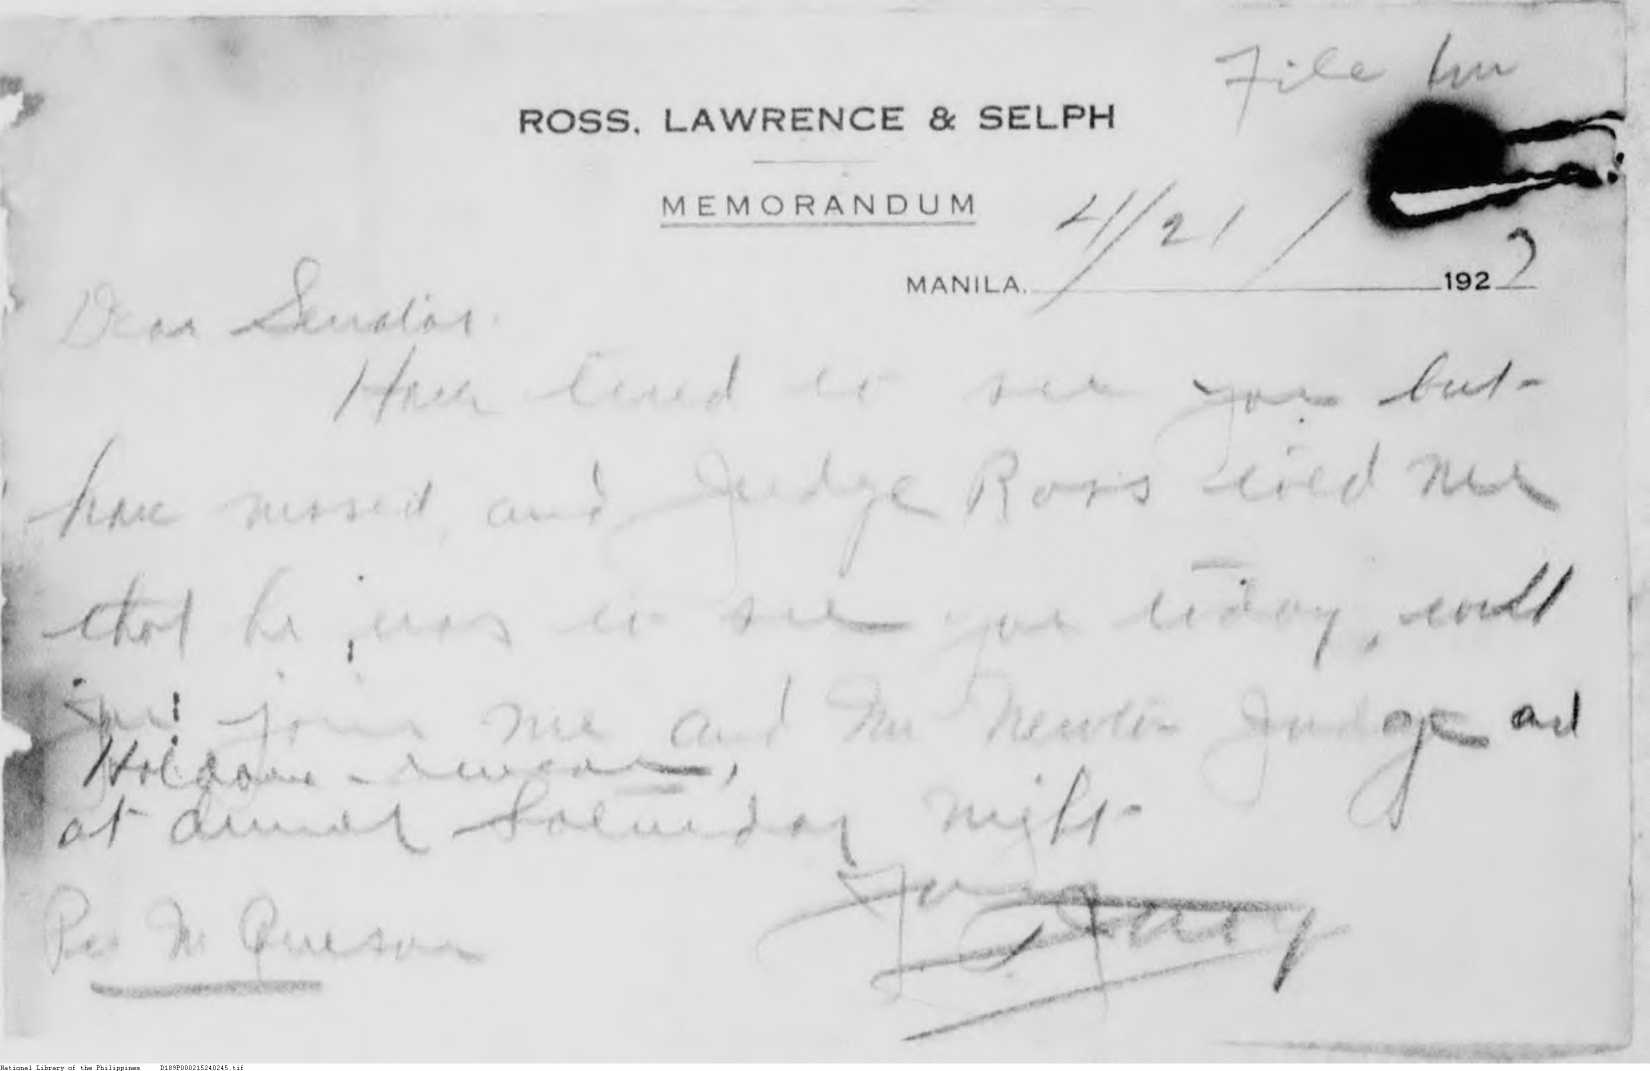 File
ROSS, LAWRENCE & SELPH
MEMORANDUM
4/21/
MANILA, 1922
Dear Senator.
Have tried to see you but
have missed, and Judge Ross told me
that he was to see you today, will
you join me and Mr Judge and
at dinner Saturday night
Yours
Pes M Queson
National Library of the Philippines D189P000215240245.tif